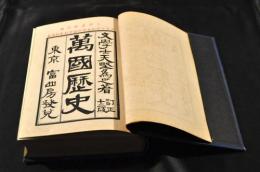 文學士天野爲之著
訂正
萬國歷史
東京 富山房發兌